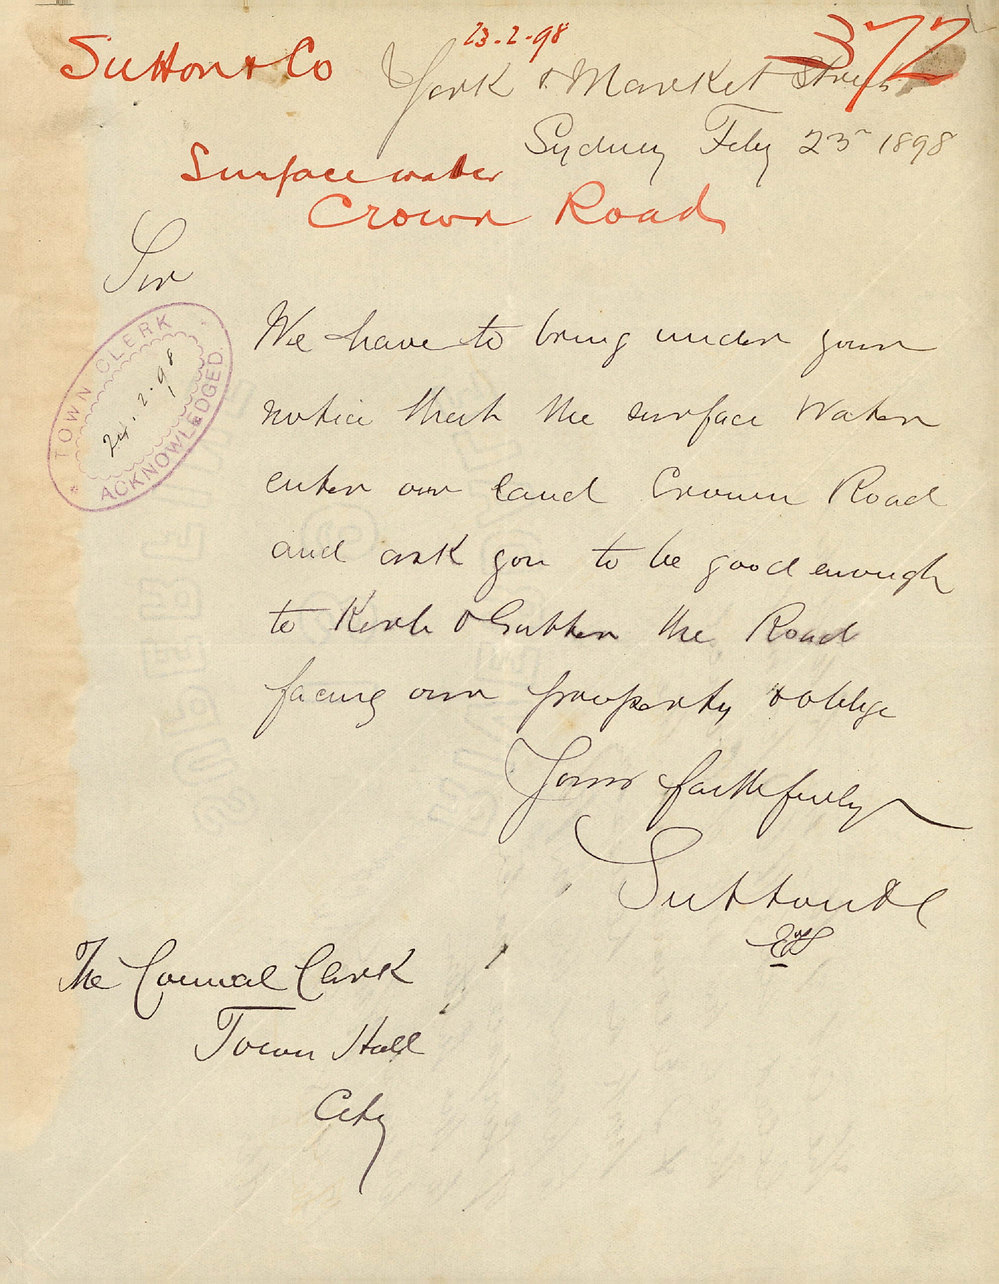 23-2-98
372
Sutton & Co
York & Market Streets
Sydney Feby 23rd 1898
Surface water
Crown Road
Sir
TOWN CLERK
24.2.98
ACKNOWLEDGED.
We have to bring under your
notice that the surface Water
enter our land Crown Road
and ask you to be good enough
to Kerb & Gutter the Road
facing our property & oblige
Yours faithfully
Sutton & Co
The Council Clerk
Town Hall
City
SUPERFINE